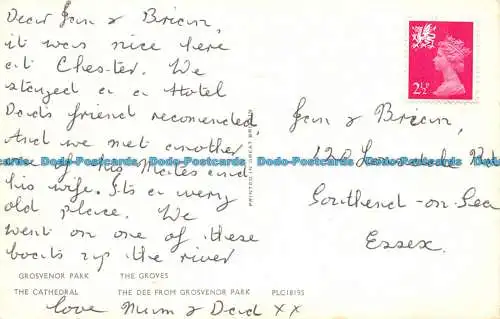 Dear Jan & Brian,
it was nice here
at Chester. We
stayed a a Hotel
Dads friend recomended,
And we met another
one of his Mates and
his wife. Its a very
old place. We
went on one of these
boats up the river
love Mum & Dad xx
GROSVENOR PARK THE GROVES
THE CATHEDRAL THE DEE FROM GROSVENOR PARK PLC18195
PRINTED IN GREAT BRITAIN
2½P
Jan & Brian,
120
Southend-on-Sea
Essex.
Dodo-Postcards Dodo-Postcards Dodo-Postcards Dodo-Postcards